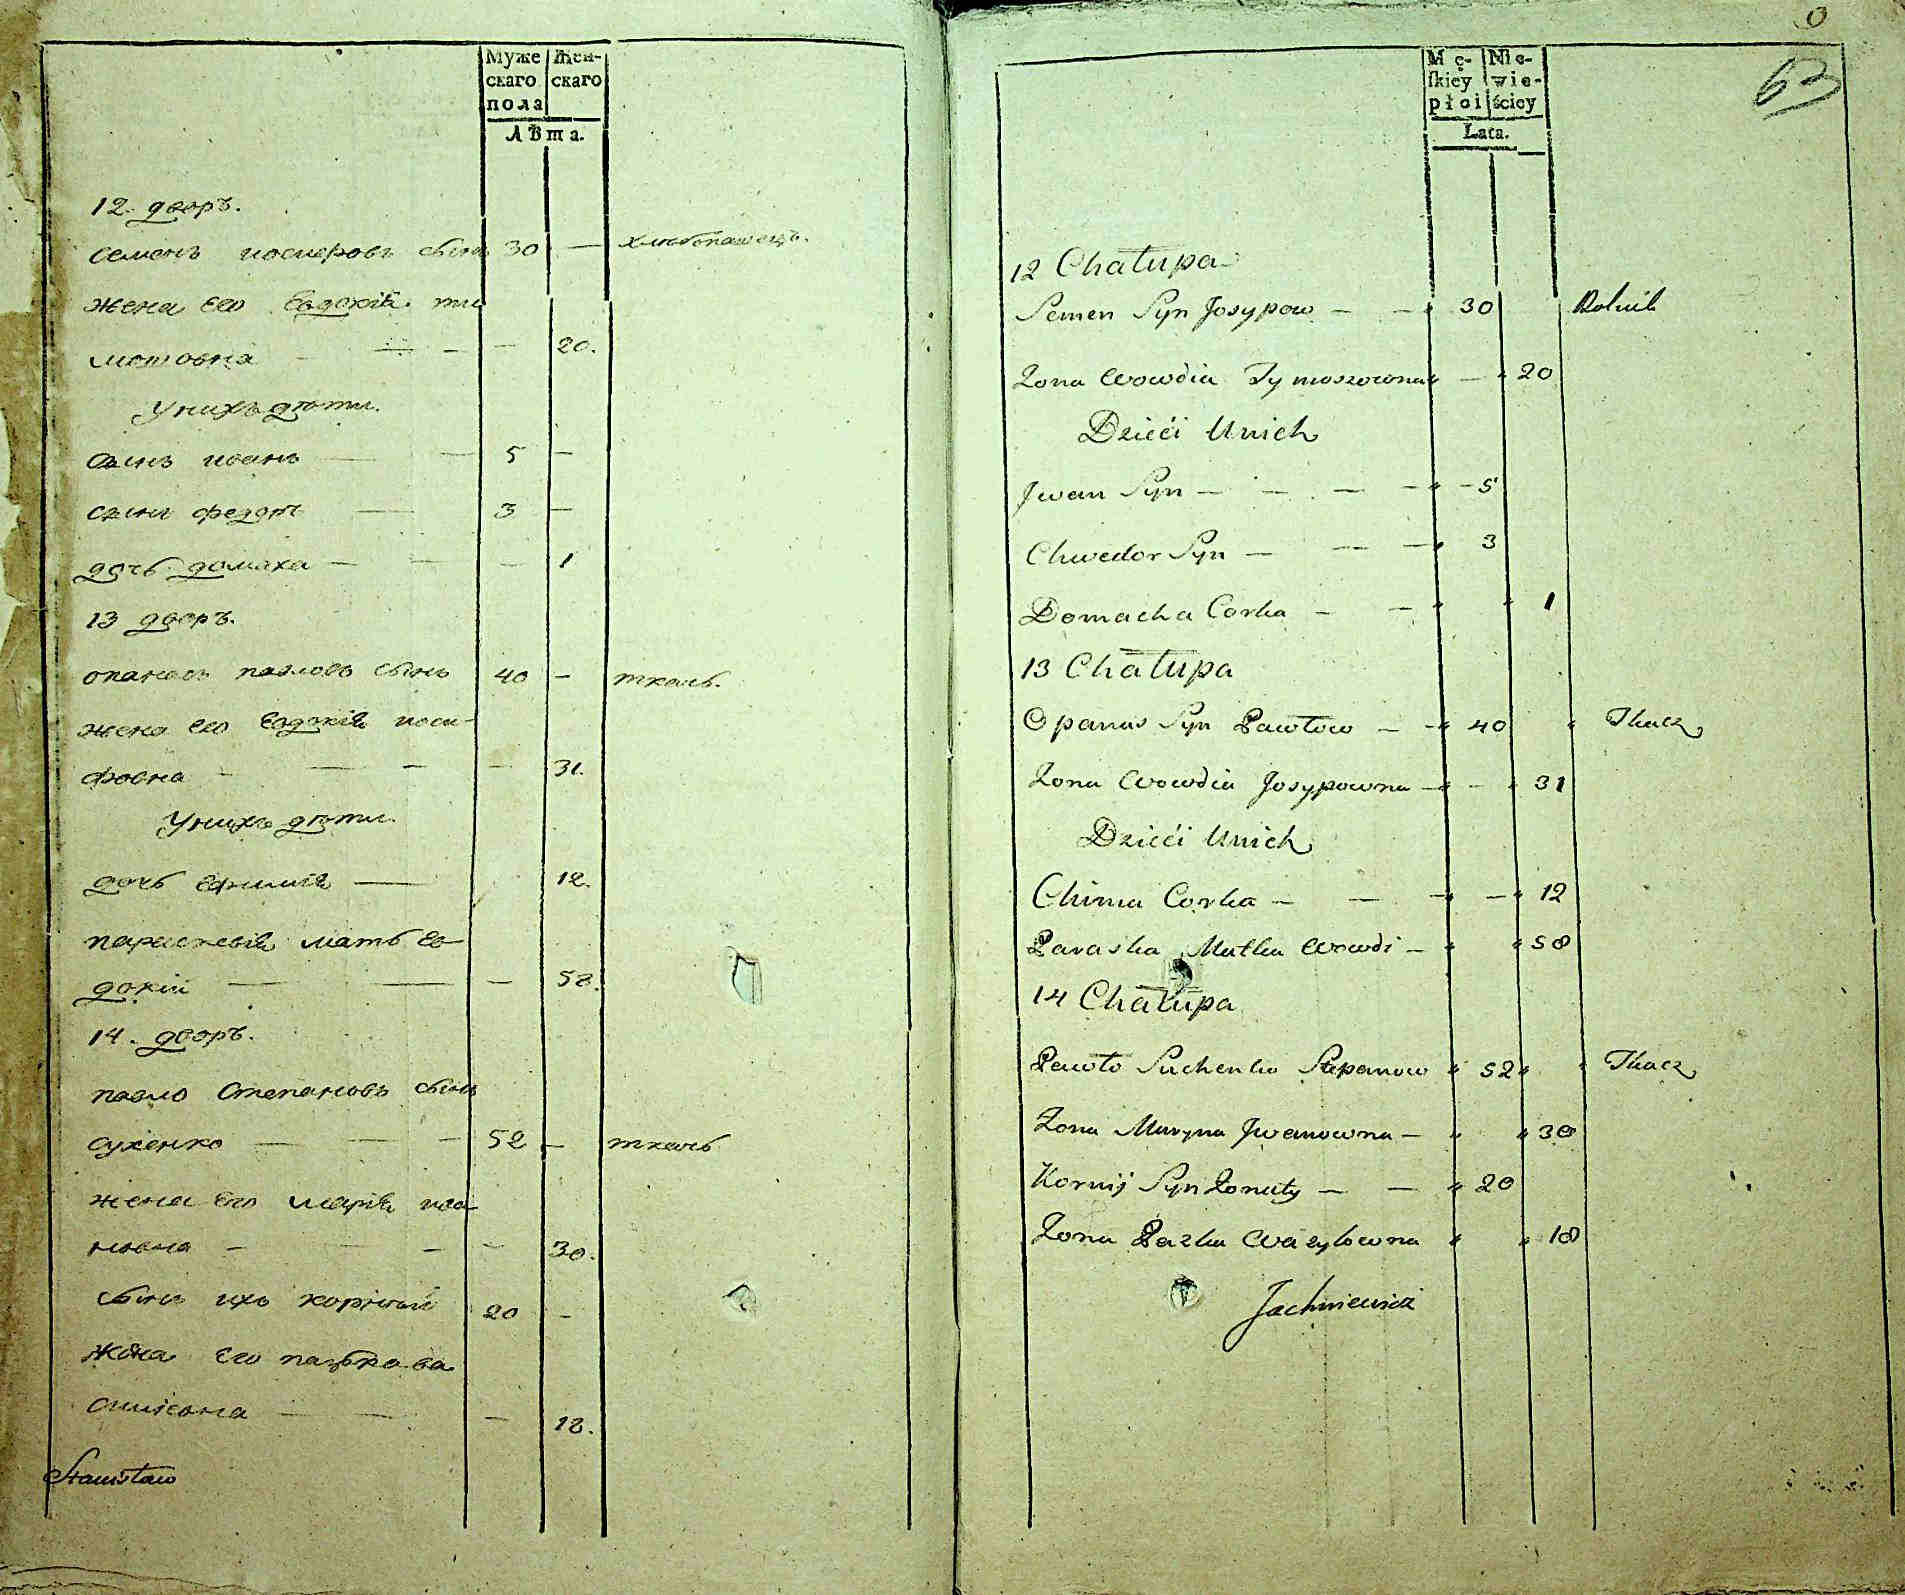 Муже Жен-
скаго скаго
пола
Лѣта.
12. дворъ.
семенъ иосиеровъ сынъ 30 — хлѣбопашецъ.
жена его Евдокія ти
мошовна — — — 20.
У нихъ дѣти.
сынъ иванъ — — 5 —
сынъ федоръ — 3 —
дочь домаха — — — 1
13 дворъ.
опанасъ павловъ сынъ 40 — ткачь.
жена его Евдокія иоси-
фовна — — — — 31.
У нихъ дѣти.
дочь Ефимія — 12.
параскевія мать Ев-
докіи — — — 58.
14. дворъ.
павло Степановъ сынъ
сухенко — — — 52 — ткачь
жена его марія ива
новна — — — — 30.
сынъ ихъ корнѣй 20 —
жена его пазька ва
силіовна — — — 18.
Stanisław
63
Mę- Nie-
ſkiey wie-
płci ściey
Lata.
12 Chałupa
Semen Syn Josypow — — „ 30 Rolnik
Zona Wowdia Tymoszowna „ — „ 20
Dzieći Unich
Jwan Syn — — — — „ - 5
Chwedor Syn — — — „ 3
Domacha Corka — — „ „ 1
13 Chałupa
Opanas Syn Pawłow — — „ 40 „ Tkacz
Zona Wowdia Josypowna — „ - „ 31
Dzieći Unich
Chima Corka — — — „ — „ 12
Paraska Matka Wowdi — „ „ 58
14 Chałupa
Pawło Suchenko Stepanow „ 52 „ „ Tkacz
Zona Maryna Jwanowna — „ „ 30
Kornij Syn Zonaty — — „ 20
Zona Pazka Wazylowna „ „ 18
Jachniewicz